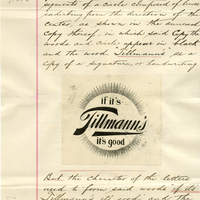 segments of a circle composed of lines
radiating from the direction of the
center, as shown in the annexed
copy thereof, in which said Copy the
words and circle appear in black
and the word Tillmann's is a
copy of a signature, or handwriting
if it's
Tillmann's
it's good
But the character of the letters
used to form said words if its
Tillmann's its good and the